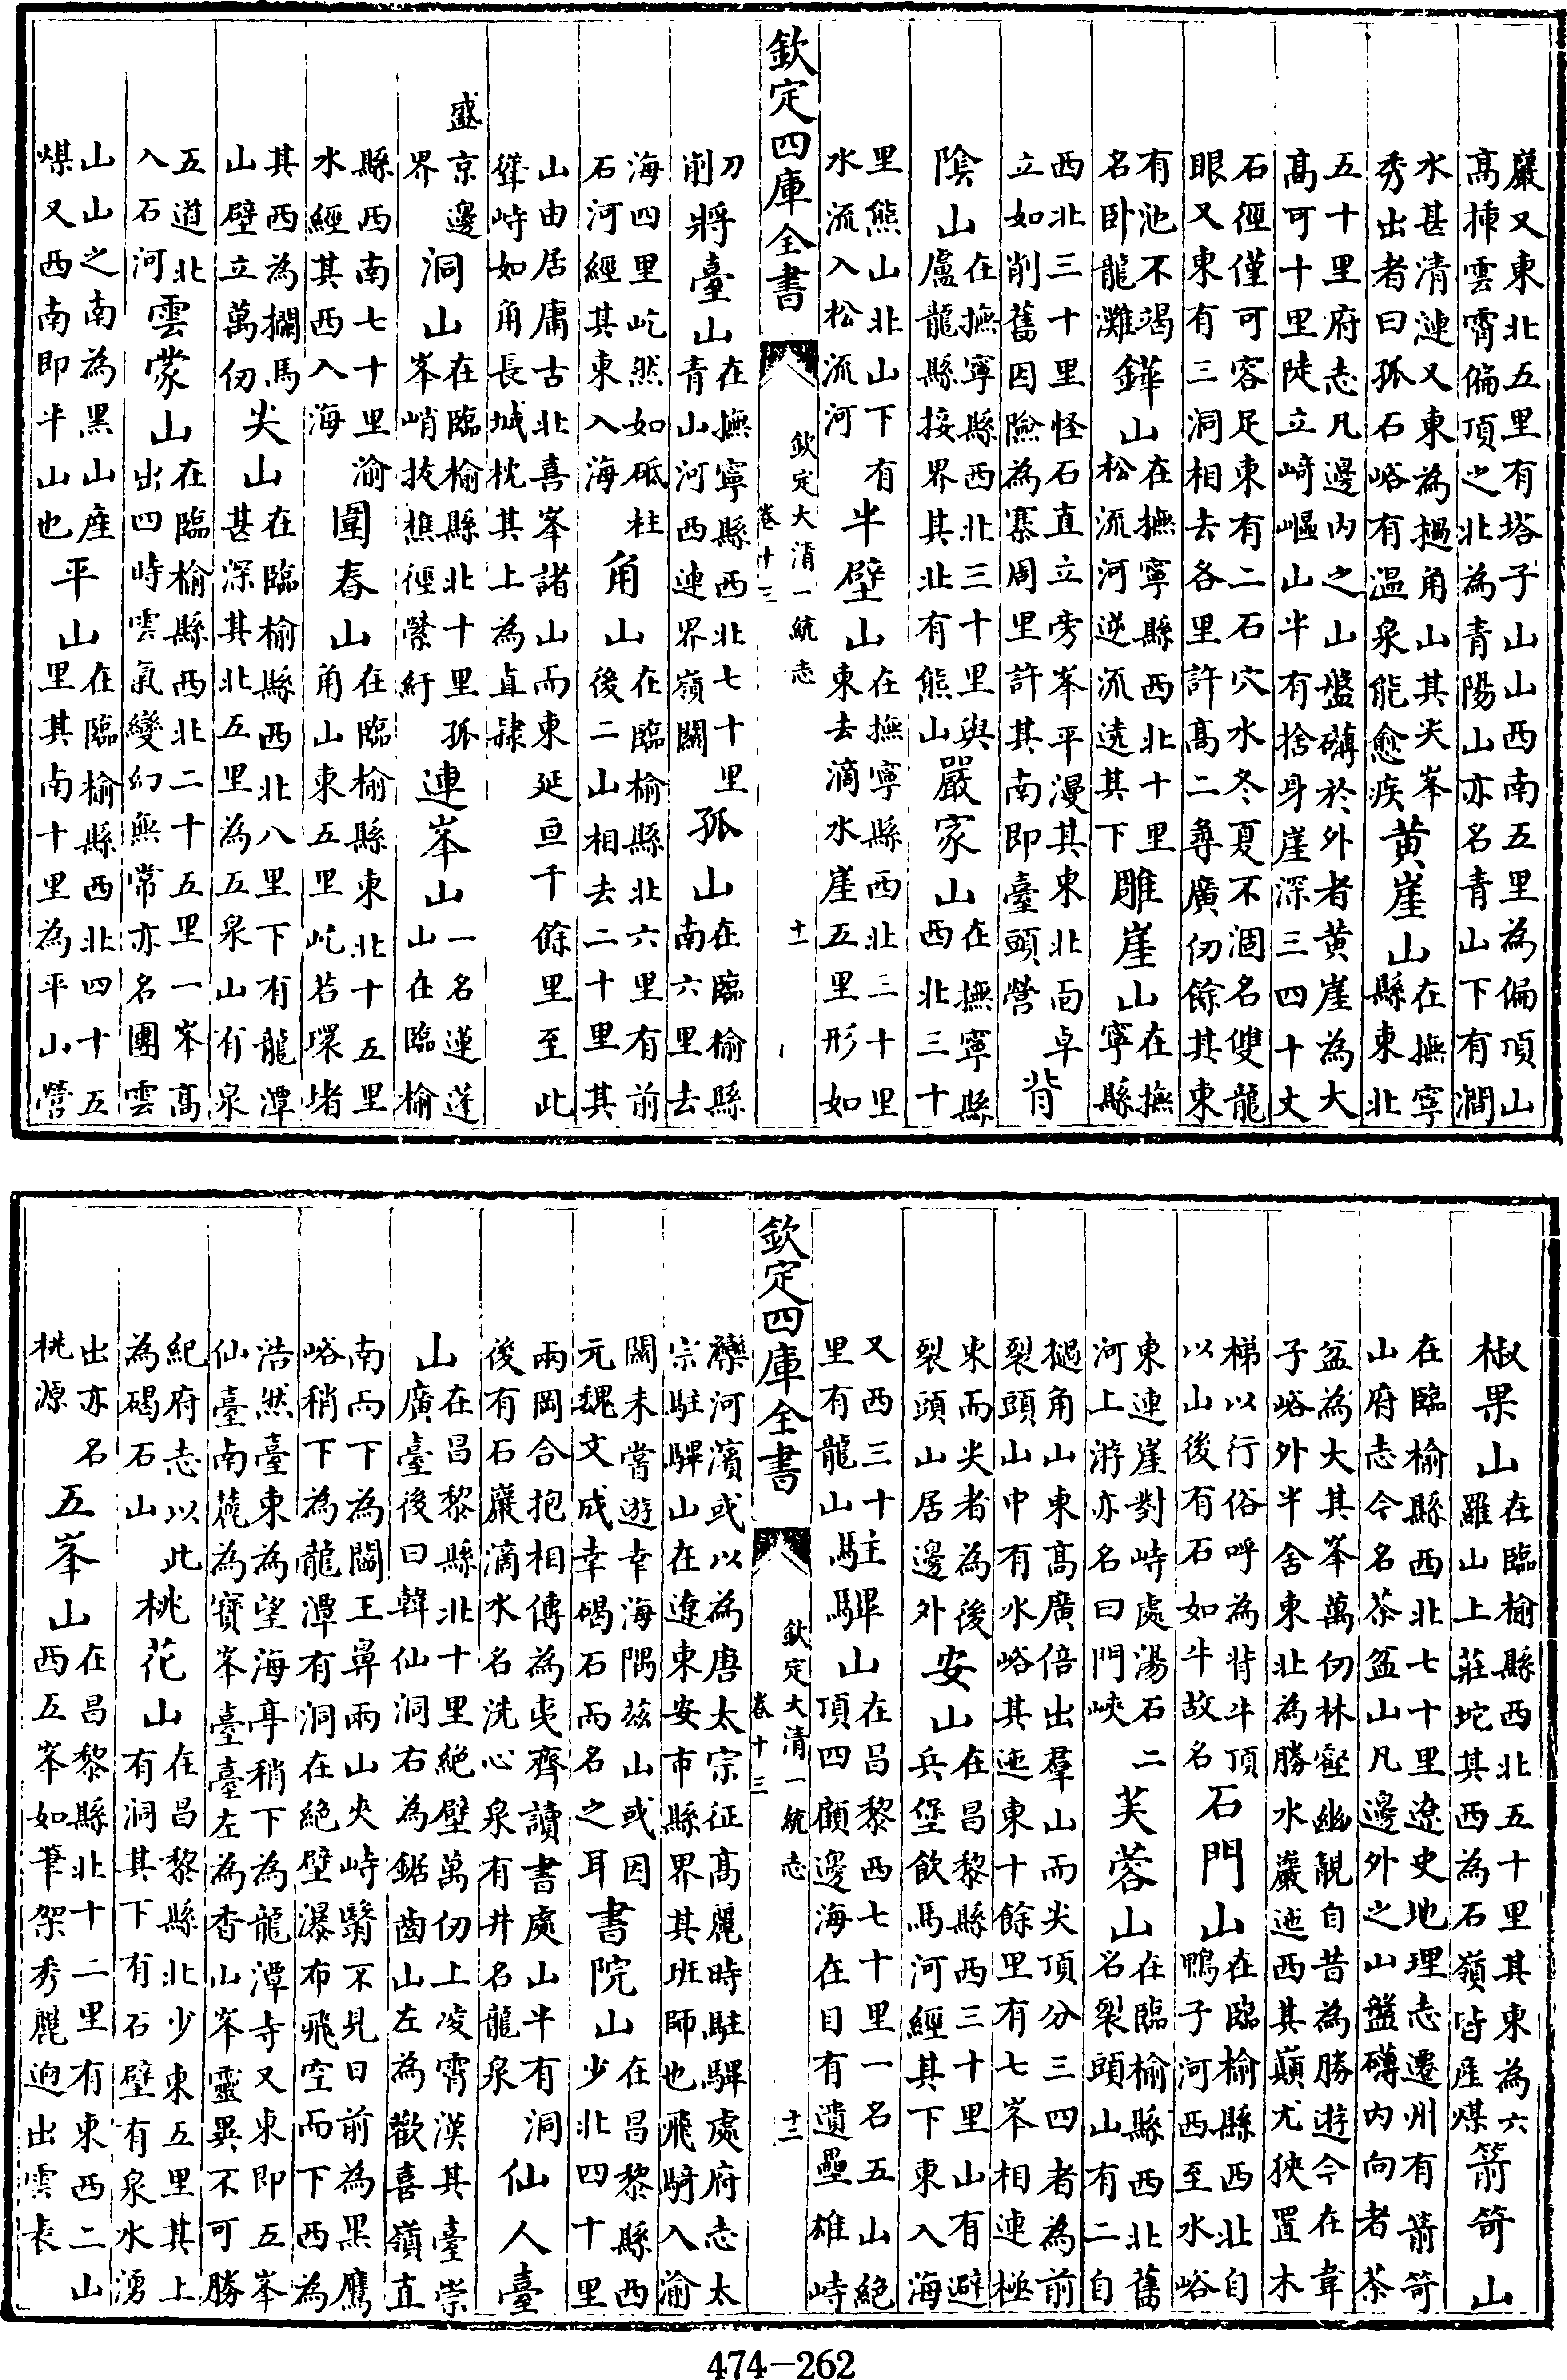 巖又東北五里有塔子山山西南五里為偏頂山
高揷雲霄偏頂之北為青陽山亦名青山下有澗
水甚清漣又東為撾角山其尖峯
秀出者曰孤石峪有溫泉能愈疾
黄崖山
在撫寧
縣東北
五十里府志凡邊内之山盤礴於外者黄崖為大
高可十里陡立崎嶇山半有捨身崖深三四十丈
石徑僅可容足東有二石穴水冬夏不涸名雙龍
眼又東有三洞相去各里許高二尋廣仞餘其東
有池不竭
名卧龍灘
鏵山
在撫寧縣西北十里
松流河逆流遶其下
雕崖山
在撫
寧縣
西北三十里怪石直立旁峯平漫其東北面卓
立如削舊因險為寨周里許其南即臺頭營
背
陰山
在撫寧縣西北三十里與
盧龍縣接界其北有熊山
嚴家山
在撫寧縣
西北三十
里熊山北山下有
水流入松流河
半壁山
在撫寧縣西北三十里
東去滴水崖五里形如
欽定四庫全書
欽定大清一統志
卷十三
十一
刀
削
將臺山
在撫寧縣西北七十里
青山河西連界嶺關
孤山
在臨榆縣
南六里去
海四里屹然如砥柱
石河經其東入海
角山
在臨榆縣北六里有前
後二山相去二十里其
山由居庸古北喜峯諸山而東延亘千餘里至此
聳峙如角長城枕其上為直隷
盛京邊
界
洞山
在臨榆縣北十里孤
峯峭拔樵徑縈紆
連峯山
一名蓮蓬
山在臨榆
縣西南七十里渝
水經其西入海
圍春山
在臨榆縣東北十五里
角山東五里屹若環堵
其西為攔馬
山壁立萬仞
尖山
在臨榆縣西北八里下有龍潭
甚深其北五里為五泉山有泉
五道北
入石河
雲蒙山
在臨榆縣西北二十五里一峯高
出四時雲氣變幻無常亦名團雲
山山之南為黑山産
煤又西南即半山也
平山
在臨榆縣西北四十五
里其南十里為平山營
椒果山
在臨榆縣西北五十里其東為六
羅山上莊坨其西為石嶺皆産煤
箭笴山
在臨榆縣西北七十里遼史地理志遷州有箭笴
山府志今名茶盆山凡邊外之山盤礴内向者茶
盆為大其峯萬仞林壑幽靚自昔為勝遊今在韋
子峪外半舍東北為勝水巖迤西其巔尤狹置木
梯以行俗呼為背牛頂
以山後有石如牛故名
石門山
在臨榆縣西北自
鴨子河西至水峪
東連崖對峙處湯石二
河上游亦名曰門峽
芙蓉山
在臨榆縣西北舊
名裂頭山有二自
撾角山東高廣倍出羣山而尖頂分三四者為前
裂頭山中有水峪其迤東十餘里有七峯相連極
東而尖者為後
裂頭山居邊外
安山
在昌黎縣西三十里山有避
兵堡飲馬河經其下東入海
又西三十
里有龍山
駐驆山
在昌黎西七十里一名五山絶
頂四顧邊海在目有遺壘雄峙
欽定四庫全書
欽定大清一統志
卷十三
十二
欒河濱或以為唐太宗征高麗時駐驆處府志太
宗駐驆山在遼東安市縣界其班師也飛騎入渝
關未嘗遊幸海隅兹山或因
元魏文成幸碣石而名之耳
書院山
在昌黎縣西
少北四十里
兩岡合抱相傳為夷齊讀書處山半有洞
後有石巖滴水名洗心泉有井名龍泉
仙人臺
山
在昌黎縣北十里絶壁萬仞上凌霄漢其臺崇
廣臺後曰韓仙洞右為鋸齒山左為歡喜嶺直
南而下為閫王鼻兩山夾峙翳不見日前為黑鷹
峪稍下為龍潭有洞在絶壁瀑布飛空而下西為
浩然臺東為望海亭稍下為龍潭寺又東即五峯
仙臺南麓為寶峯臺臺左為香山峯靈異不可勝
紀府志以此
為碣石山
桃花山
在昌黎縣北少東五里其上
有洞其下有石壁有泉水湧
出亦名
桃源
五峯山
在昌黎縣北十二里有東西二山
西五峯如筆架秀麗迥出雲表
474-262